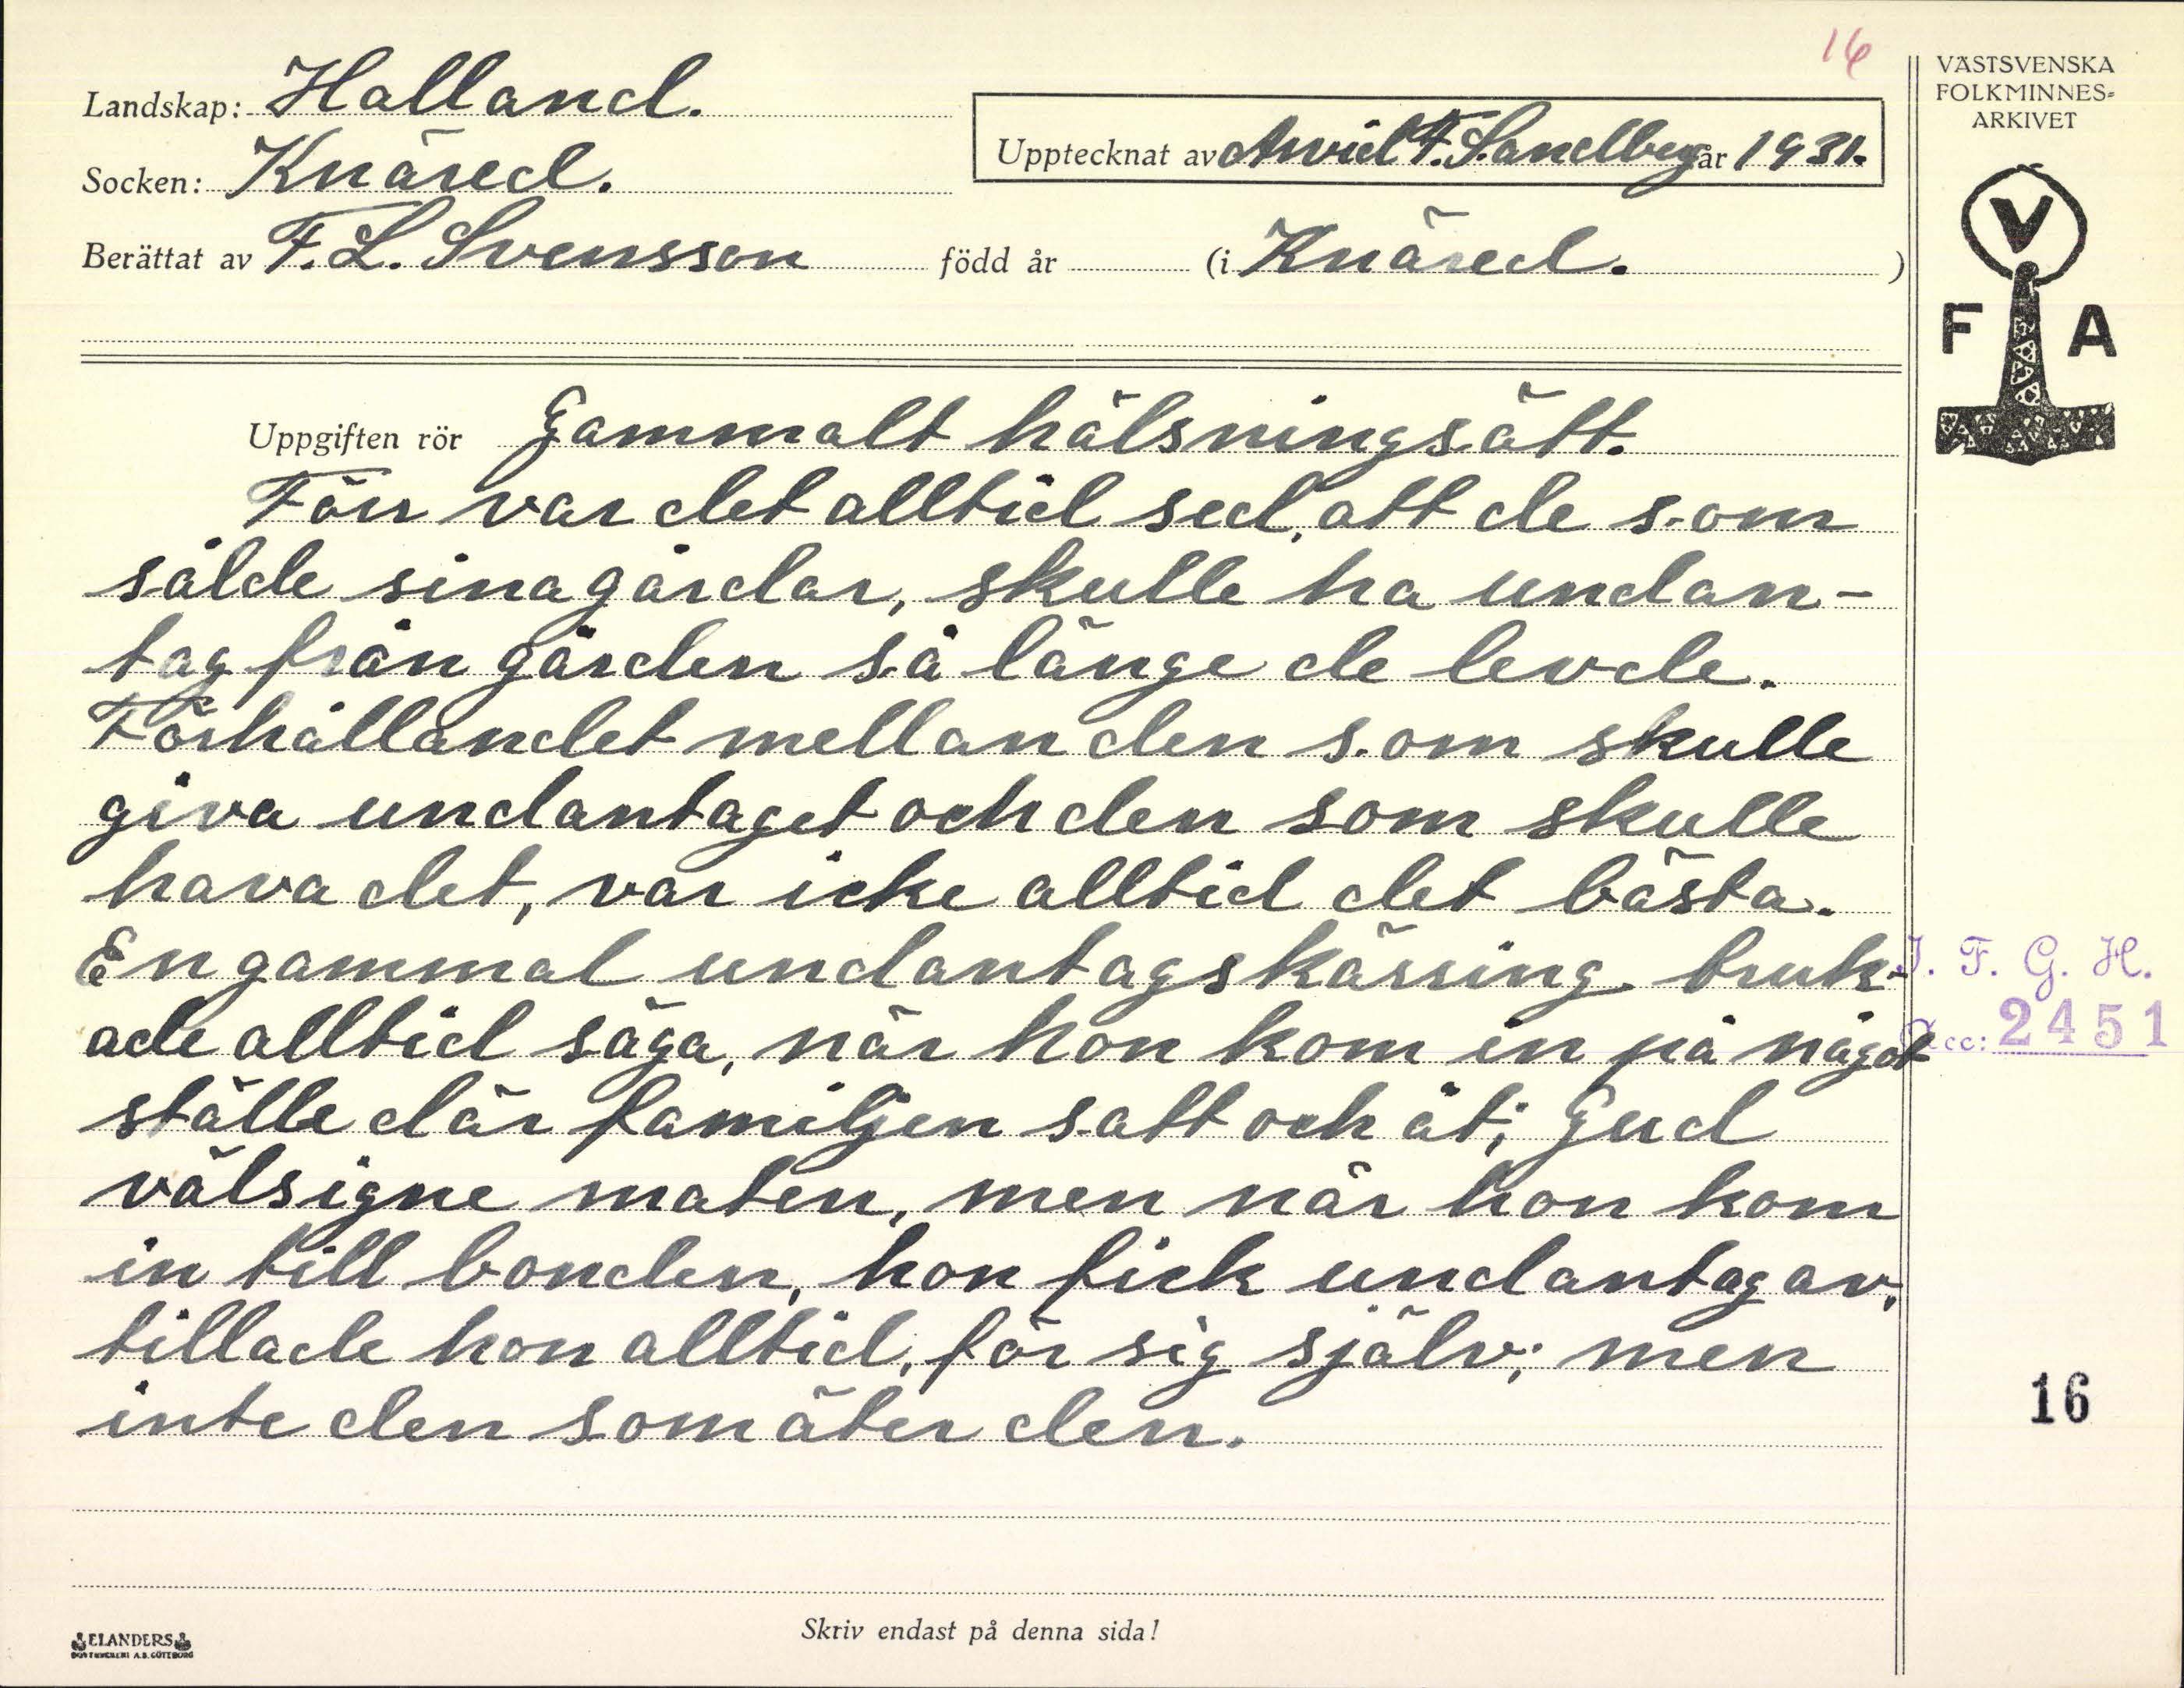 16
Landskap: Halland.
Socken: Knäred.
Upptecknat av Arvid F. Sandberg år 1931.
Berättat av F. L. Svensson född år (i Knäred. )
VÄSTSVENSKA
FOLKMINNES-
ARKIVET
V
F A
Uppgiften rör Gammalt hälsningsätt.
Förr var det alltid sed, att de som
sålde sina gårdar, skulle ha undan-
tag från gården så länge de levde.
Förhållandet mellan den som skulle
giva undantaget och den som skulle
hava det, var icke alltid det bästa.
En gammal undantagskärring bruk-
ade alltid säga, när hon kom in på något
ställe där familjen satt och åt; Gud
välsigne maten, men när hon kom
in till bonden, hon fick undantag av,
tillade hon alltid, för sig själv; men
inte den som äter den.
I. F. G. H.
Acc: 2451
16
Skriv endast på denna sida!
ELANDERS
BOKTRYCKERI A.B. GÖTEBORG